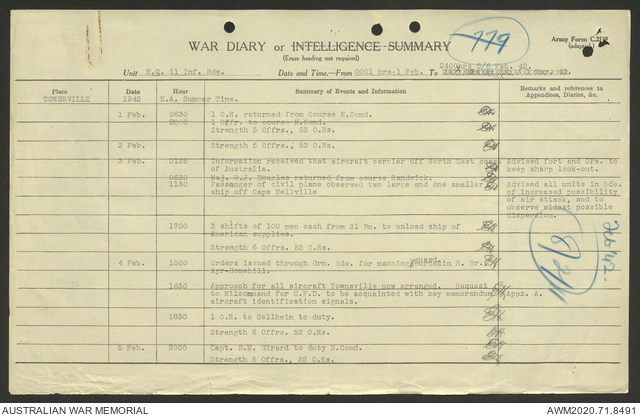 779
Army Form C.2118
(adapted)
WAR DIARY or INTELLIGENCE SUMMARY
(Erase heading not required)
Unit H.Q. 11 Inf. Bde. Date and Time.—From 0001 hrs-1 Feb. To 2400hrs 5/6 Feb. 42.
Place Date Hour Summary of Events and Information Remarks and references to Appendices, Diaries, &c.
TOWNSVILLE 1942 E.A. Summer Time.
1 Feb. 0630 1 O.R. returned from Course N.Comd.
2000 1 Offr. to course N.Comd.
Strength 5 Offrs., 53 O.Rs.
2 Feb. Strength 5 Offrs., 53 O.Rs.
3 Feb. 0135 Information received that aircraft carrier off North East coast Advised fort and Grs. to
of Australia. keep sharp look-out.
0630 Maj. R.J. Douglas returned from course Randwick.
1130 Passenger of civil plane observed two large and one smaller Advised all units in Bde.
ship off Cape Mellville of increased possibility
of air attack, and to
observe widest possible
dispersion.
1700 3 shifts of 100 men each from 31 Bn. to unload ship of
American supplies.
Strength 6 Offrs. 53 O.Rs.
4 Feb. 1500 Orders issued through Grn. Bde. for manning guard Burdekin R. Br.
Ayr-Homehill.
1630 Approach for all aircraft Townsville now arranged. Request
to Milcommand for C.F.D. to be acquainted with key memorandum Appx. A.
aircraft identification signals.
1830 1 O.R. to Sellheim to duty.
Strength 6 Offrs. 52 O.Rs.
5 Feb. 2000 Capt. B.W. Girard to duty N.Comd.
Strength 5 Offrs., 52 O.Rs.
Feb 42.
AUSTRALIAN WAR MEMORIAL AWM2020.71.8491